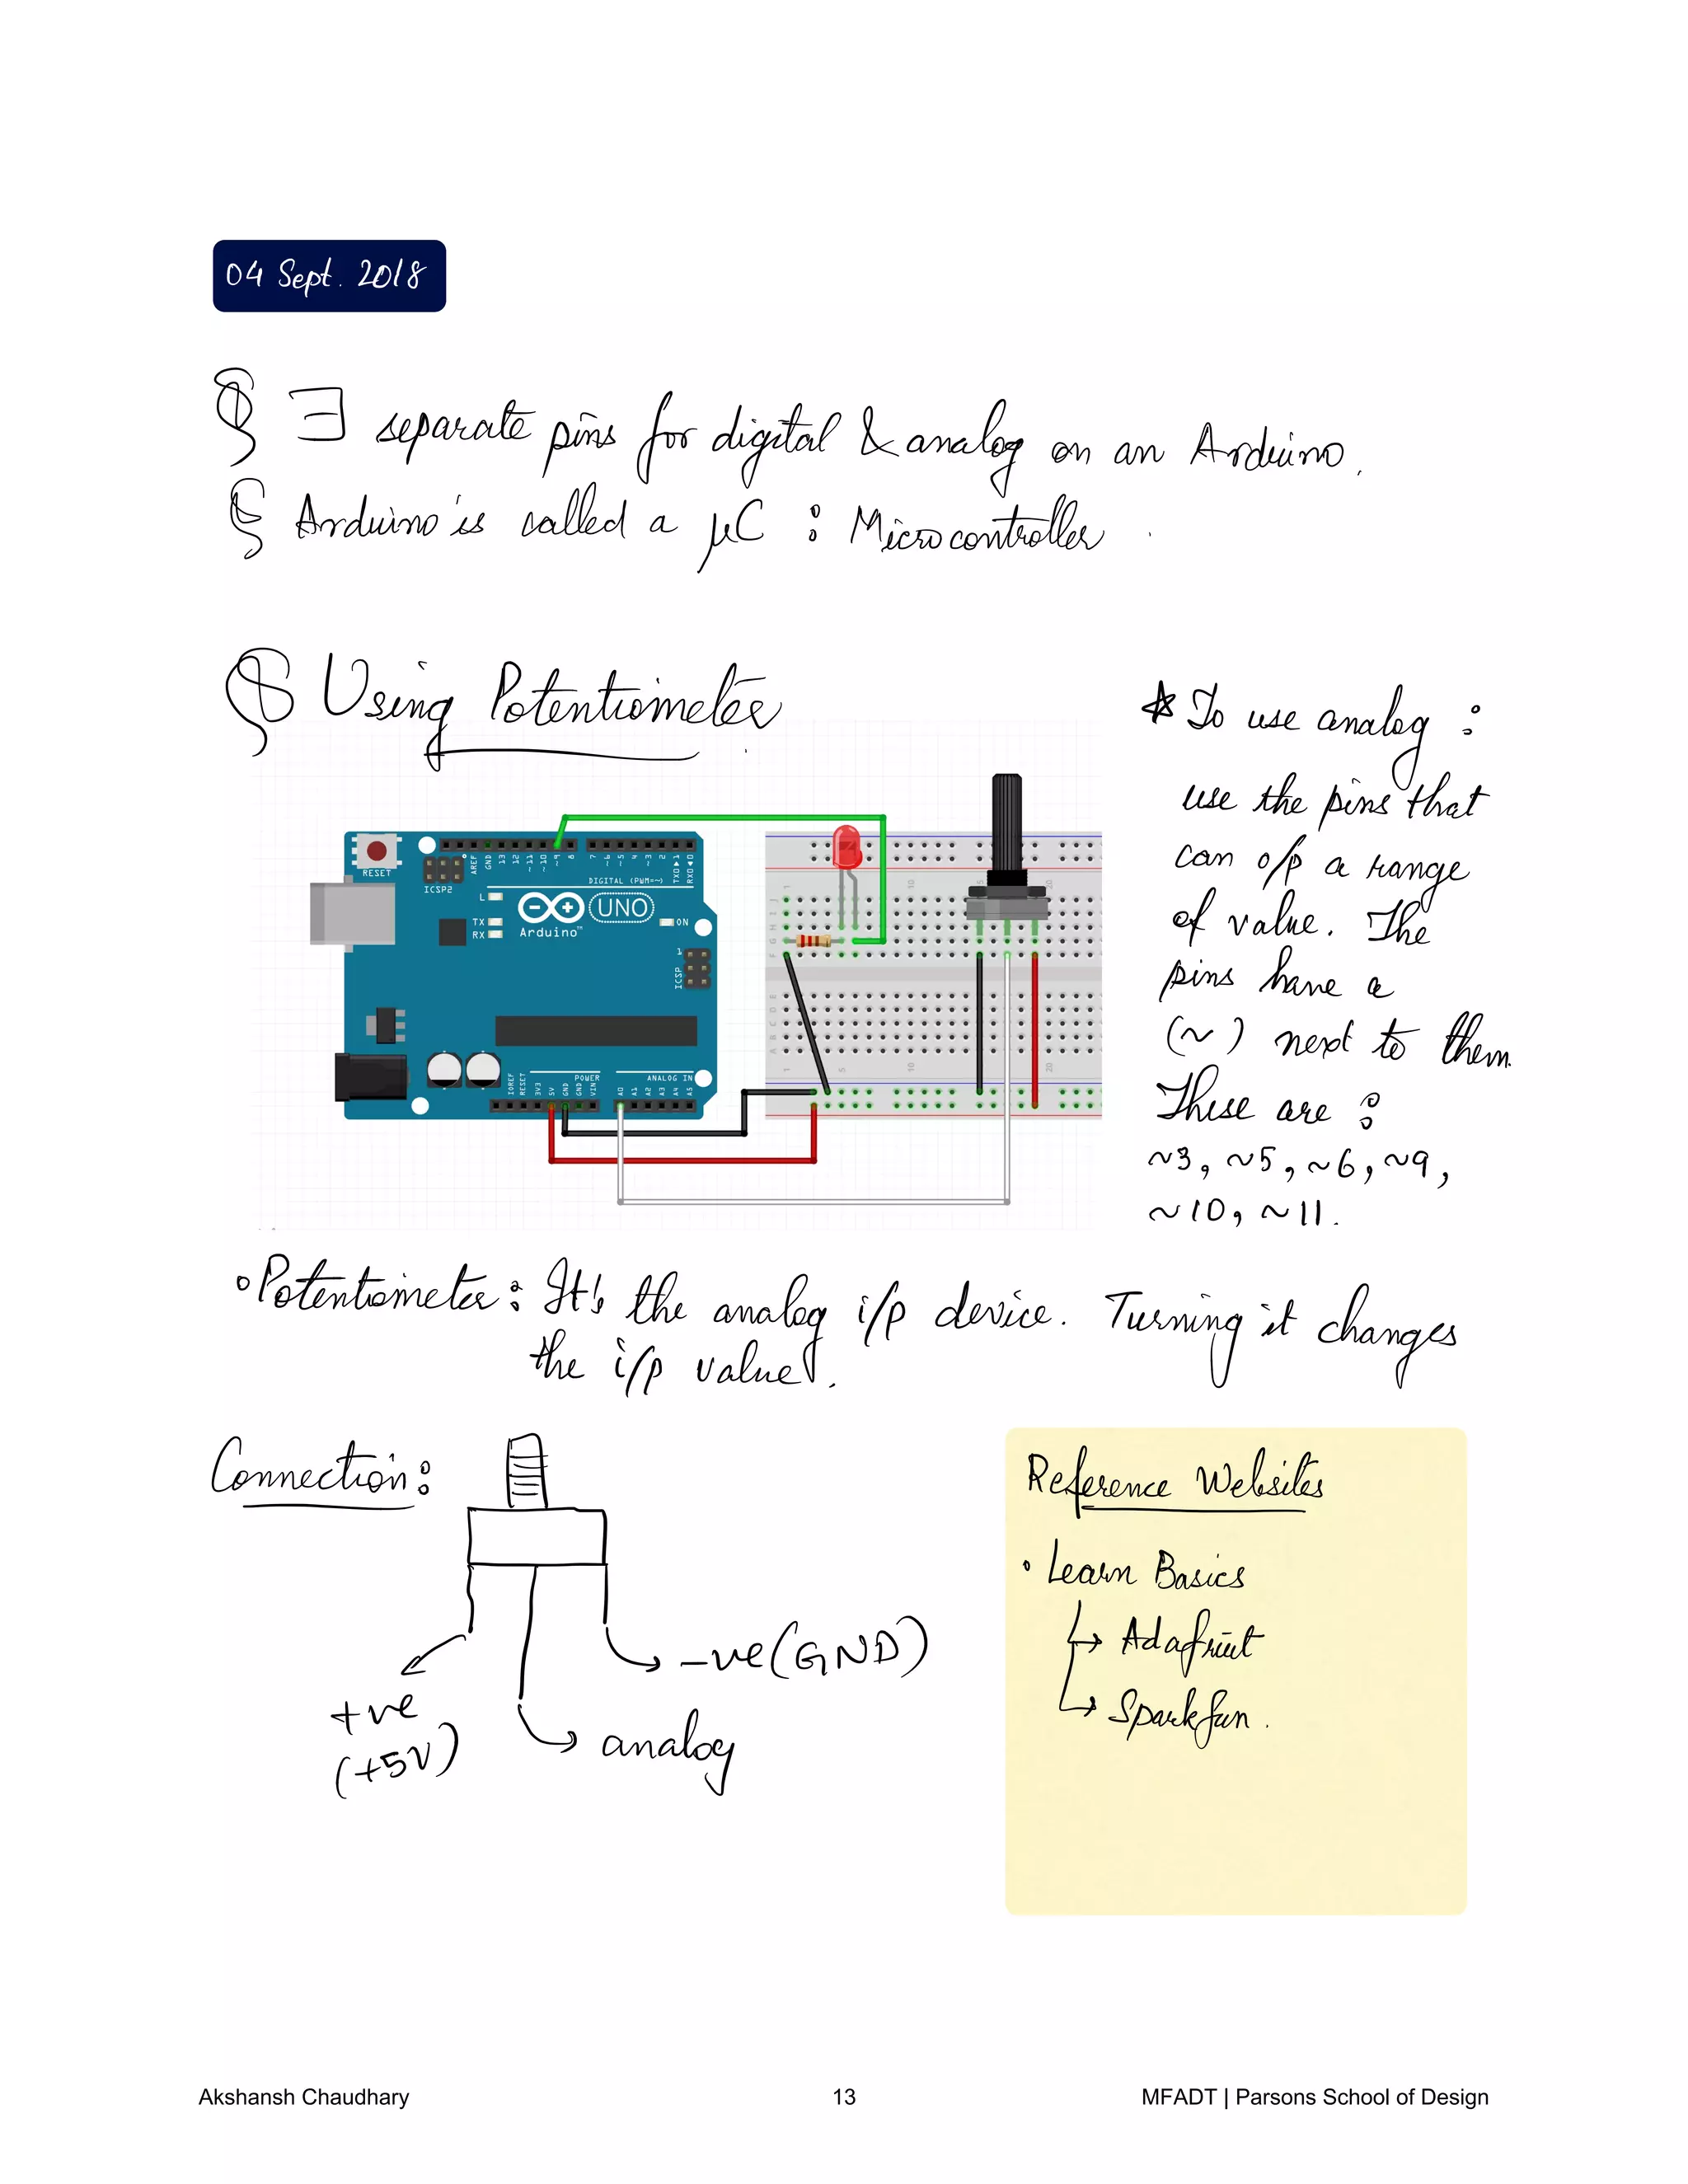 04 Sept. 2018
§ ∃ separate pins for digital & analog on an Arduino.
§ Arduino is called a μC : Microcontroller.
§ Using Potentiometer.
* To use analog :
use the pins that
can o/p a range
of value. The
pins have a
(~) next to them.
These are :
~3, ~5, ~6, ~9,
~10, ~11.
RESET
ICSP2
AREF
GND
13
12
~11
~10
~9
8
7
~6
~5
4
~3
2
TX0▶1
RX0◀0
DIGITAL (PWM=~)
L
TX
RX
UNO
Arduino™
ON
1
ICSP
IOREF
RESET
3V3
5V
GND
GND
VIN
POWER
ANALOG IN
A0
A1
A2
A3
A4
A5
• Potentiometer : It's the analog i/p device. Turning it changes
the i/p value.
Connection :
-ve (GND)
+ve
(+5V)
analog
Reference Websites
• Learn Basics
↳ Adafruit
↳ Sparkfun.
Akshansh Chaudhary 13 MFADT | Parsons School of Design